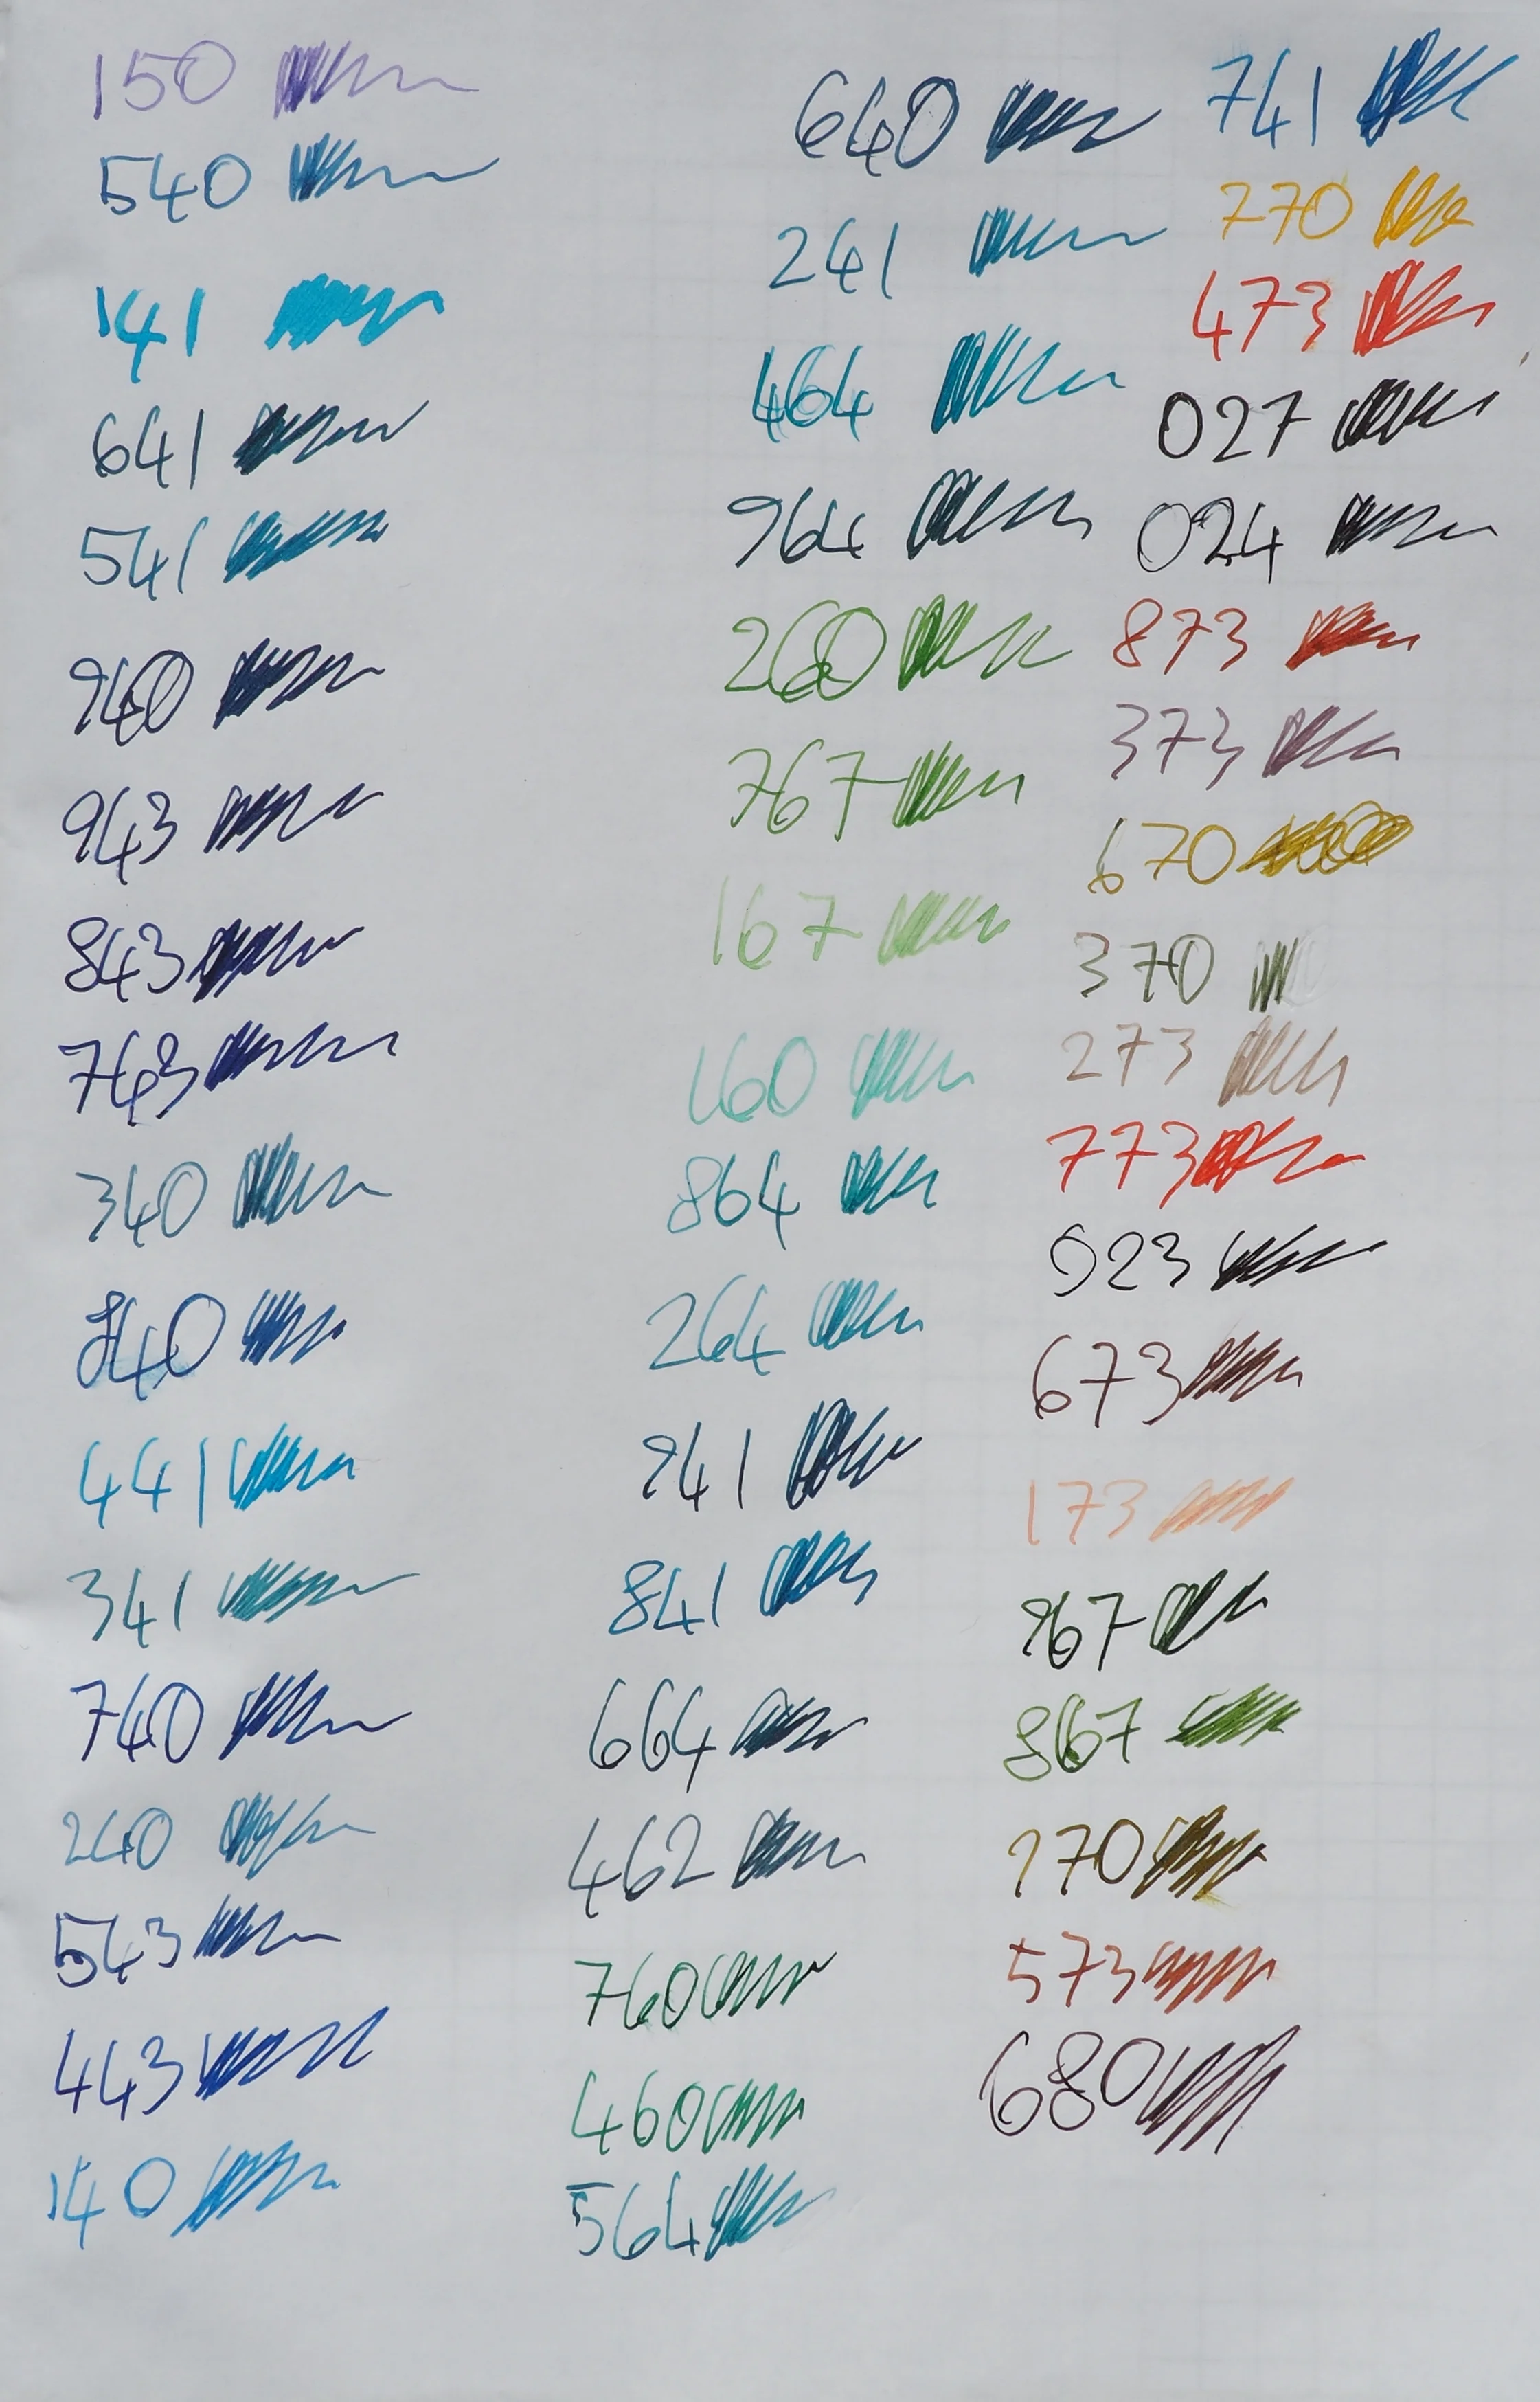 150
540
141
641
541
940
943
843
743
340
840
441
341
740
240
543
443
140
640
241
464
964
260
767
167
160
864
264
941
841
664
462
760
460
564
741
770
473
027
024
873
373
670
370
273
773
023
673
173
967
867
970
573
680